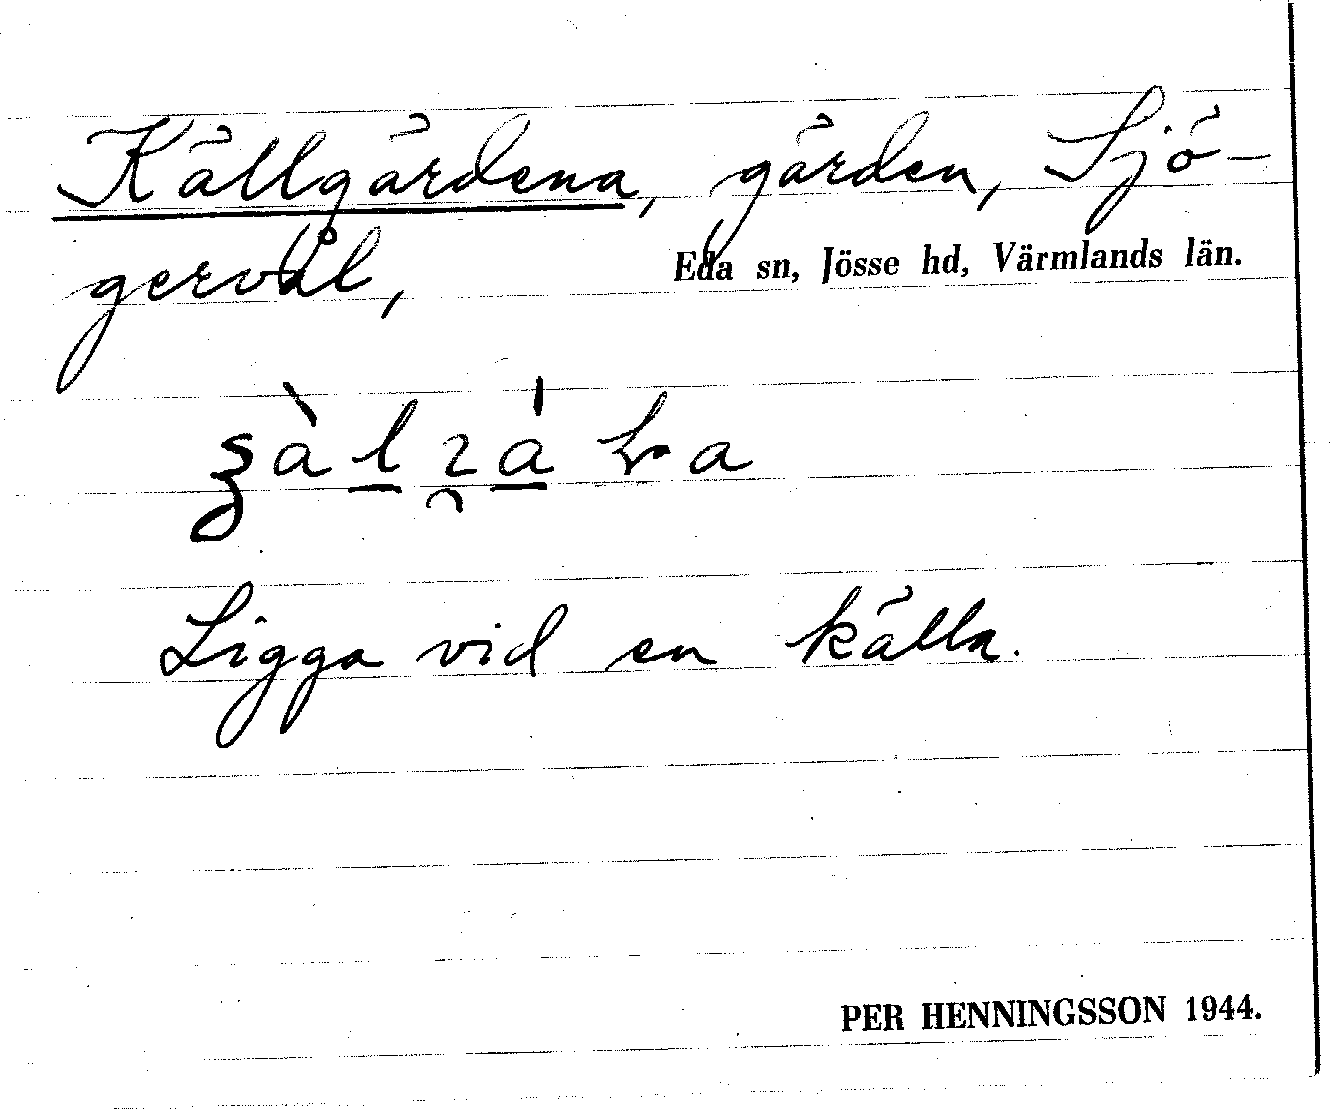 Källgärdena, gärden, Sjö-
gervål,
Eda sn, Jösse hd, Värmlands län.
Ligga vid en källa.
PER HENNINGSSON 1944.